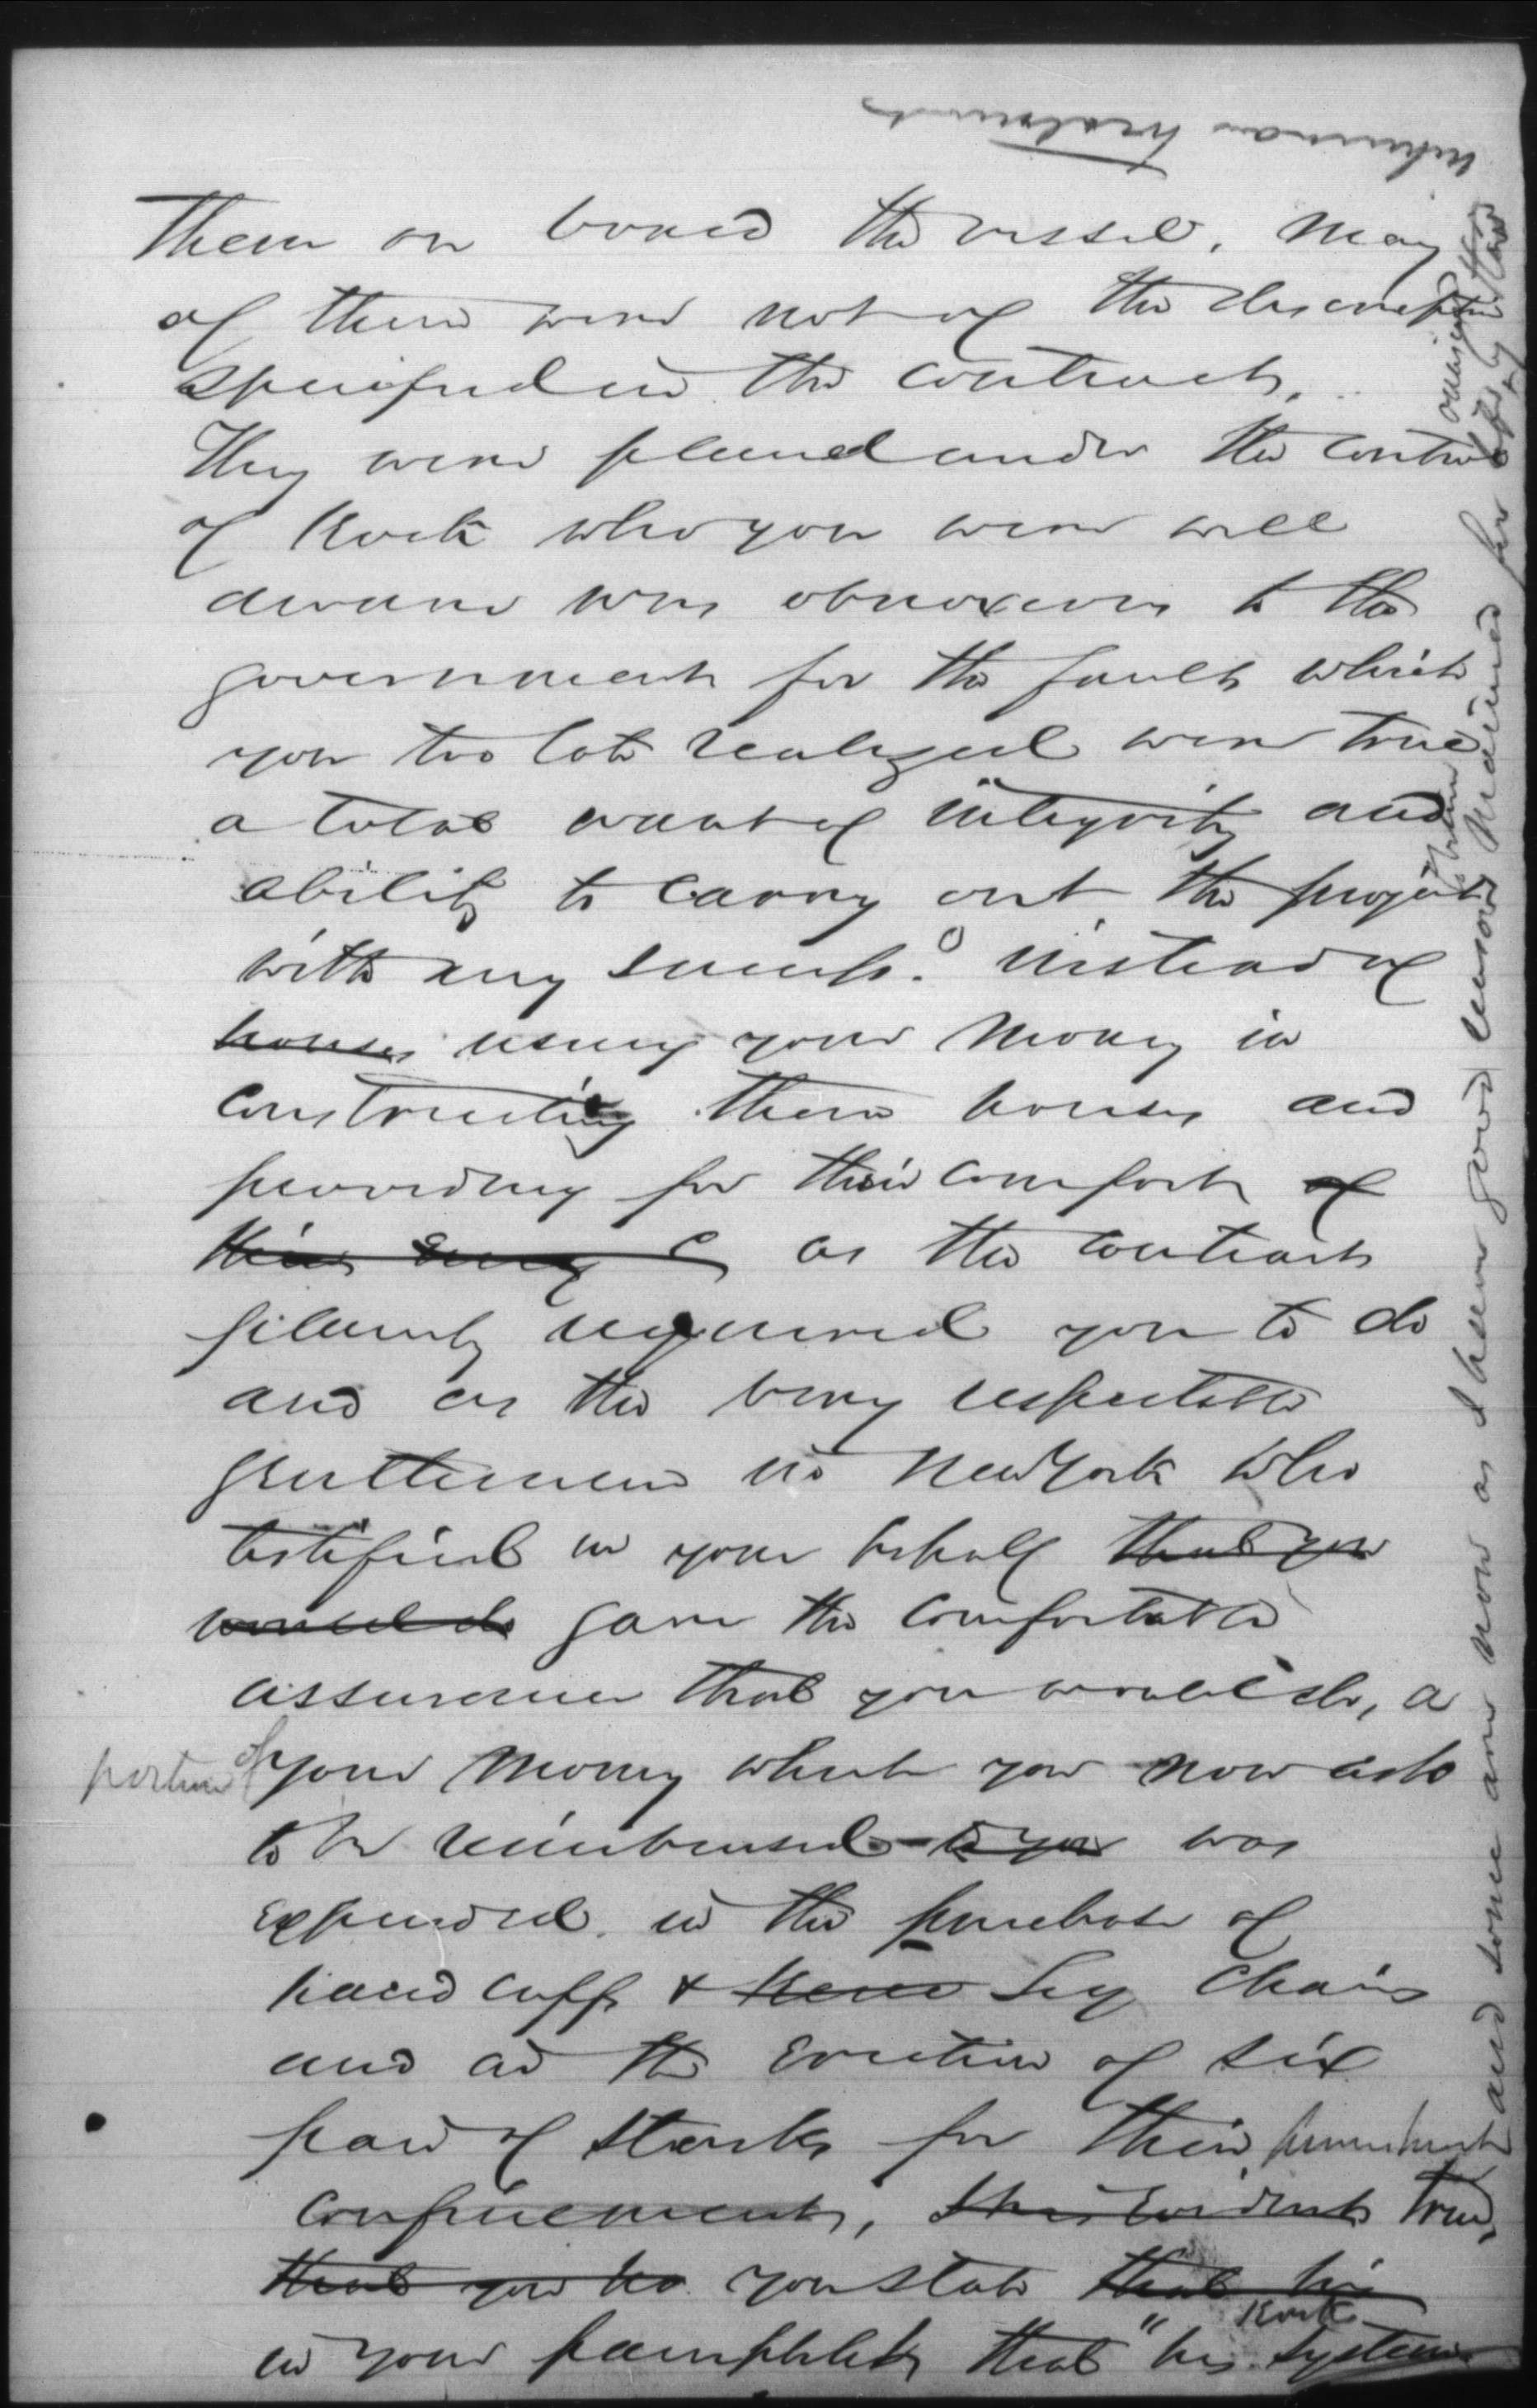 Them on board the vessel. Many
of them were not of the description
specified in the contract.
They were placed under the control
of Kock who you were well
aware was obnoxious to the
government for the faults which
you too late realized were true
a total want of integrity and
ability to carry out the project
with any success. Instead of
houses using your money in
constructing them houses and
providing for their comfort of
their as the contract
required you to do
and as the very respectable
gentlemen in New York who
testified in your behalf that you
would do gave the comfortable
assurance that you would do, a
portion of your money which you now ask
to be reimbursed to you was
expended in the purchase of
hand cuffs & leg chains
and in the erection of six
pair of stocks for their punishment
confinement, this evident true,
that you do you state that his
in your pamphlet that "his Kock system
and some are now as I have good reason maimed for life by
inhuman treatment